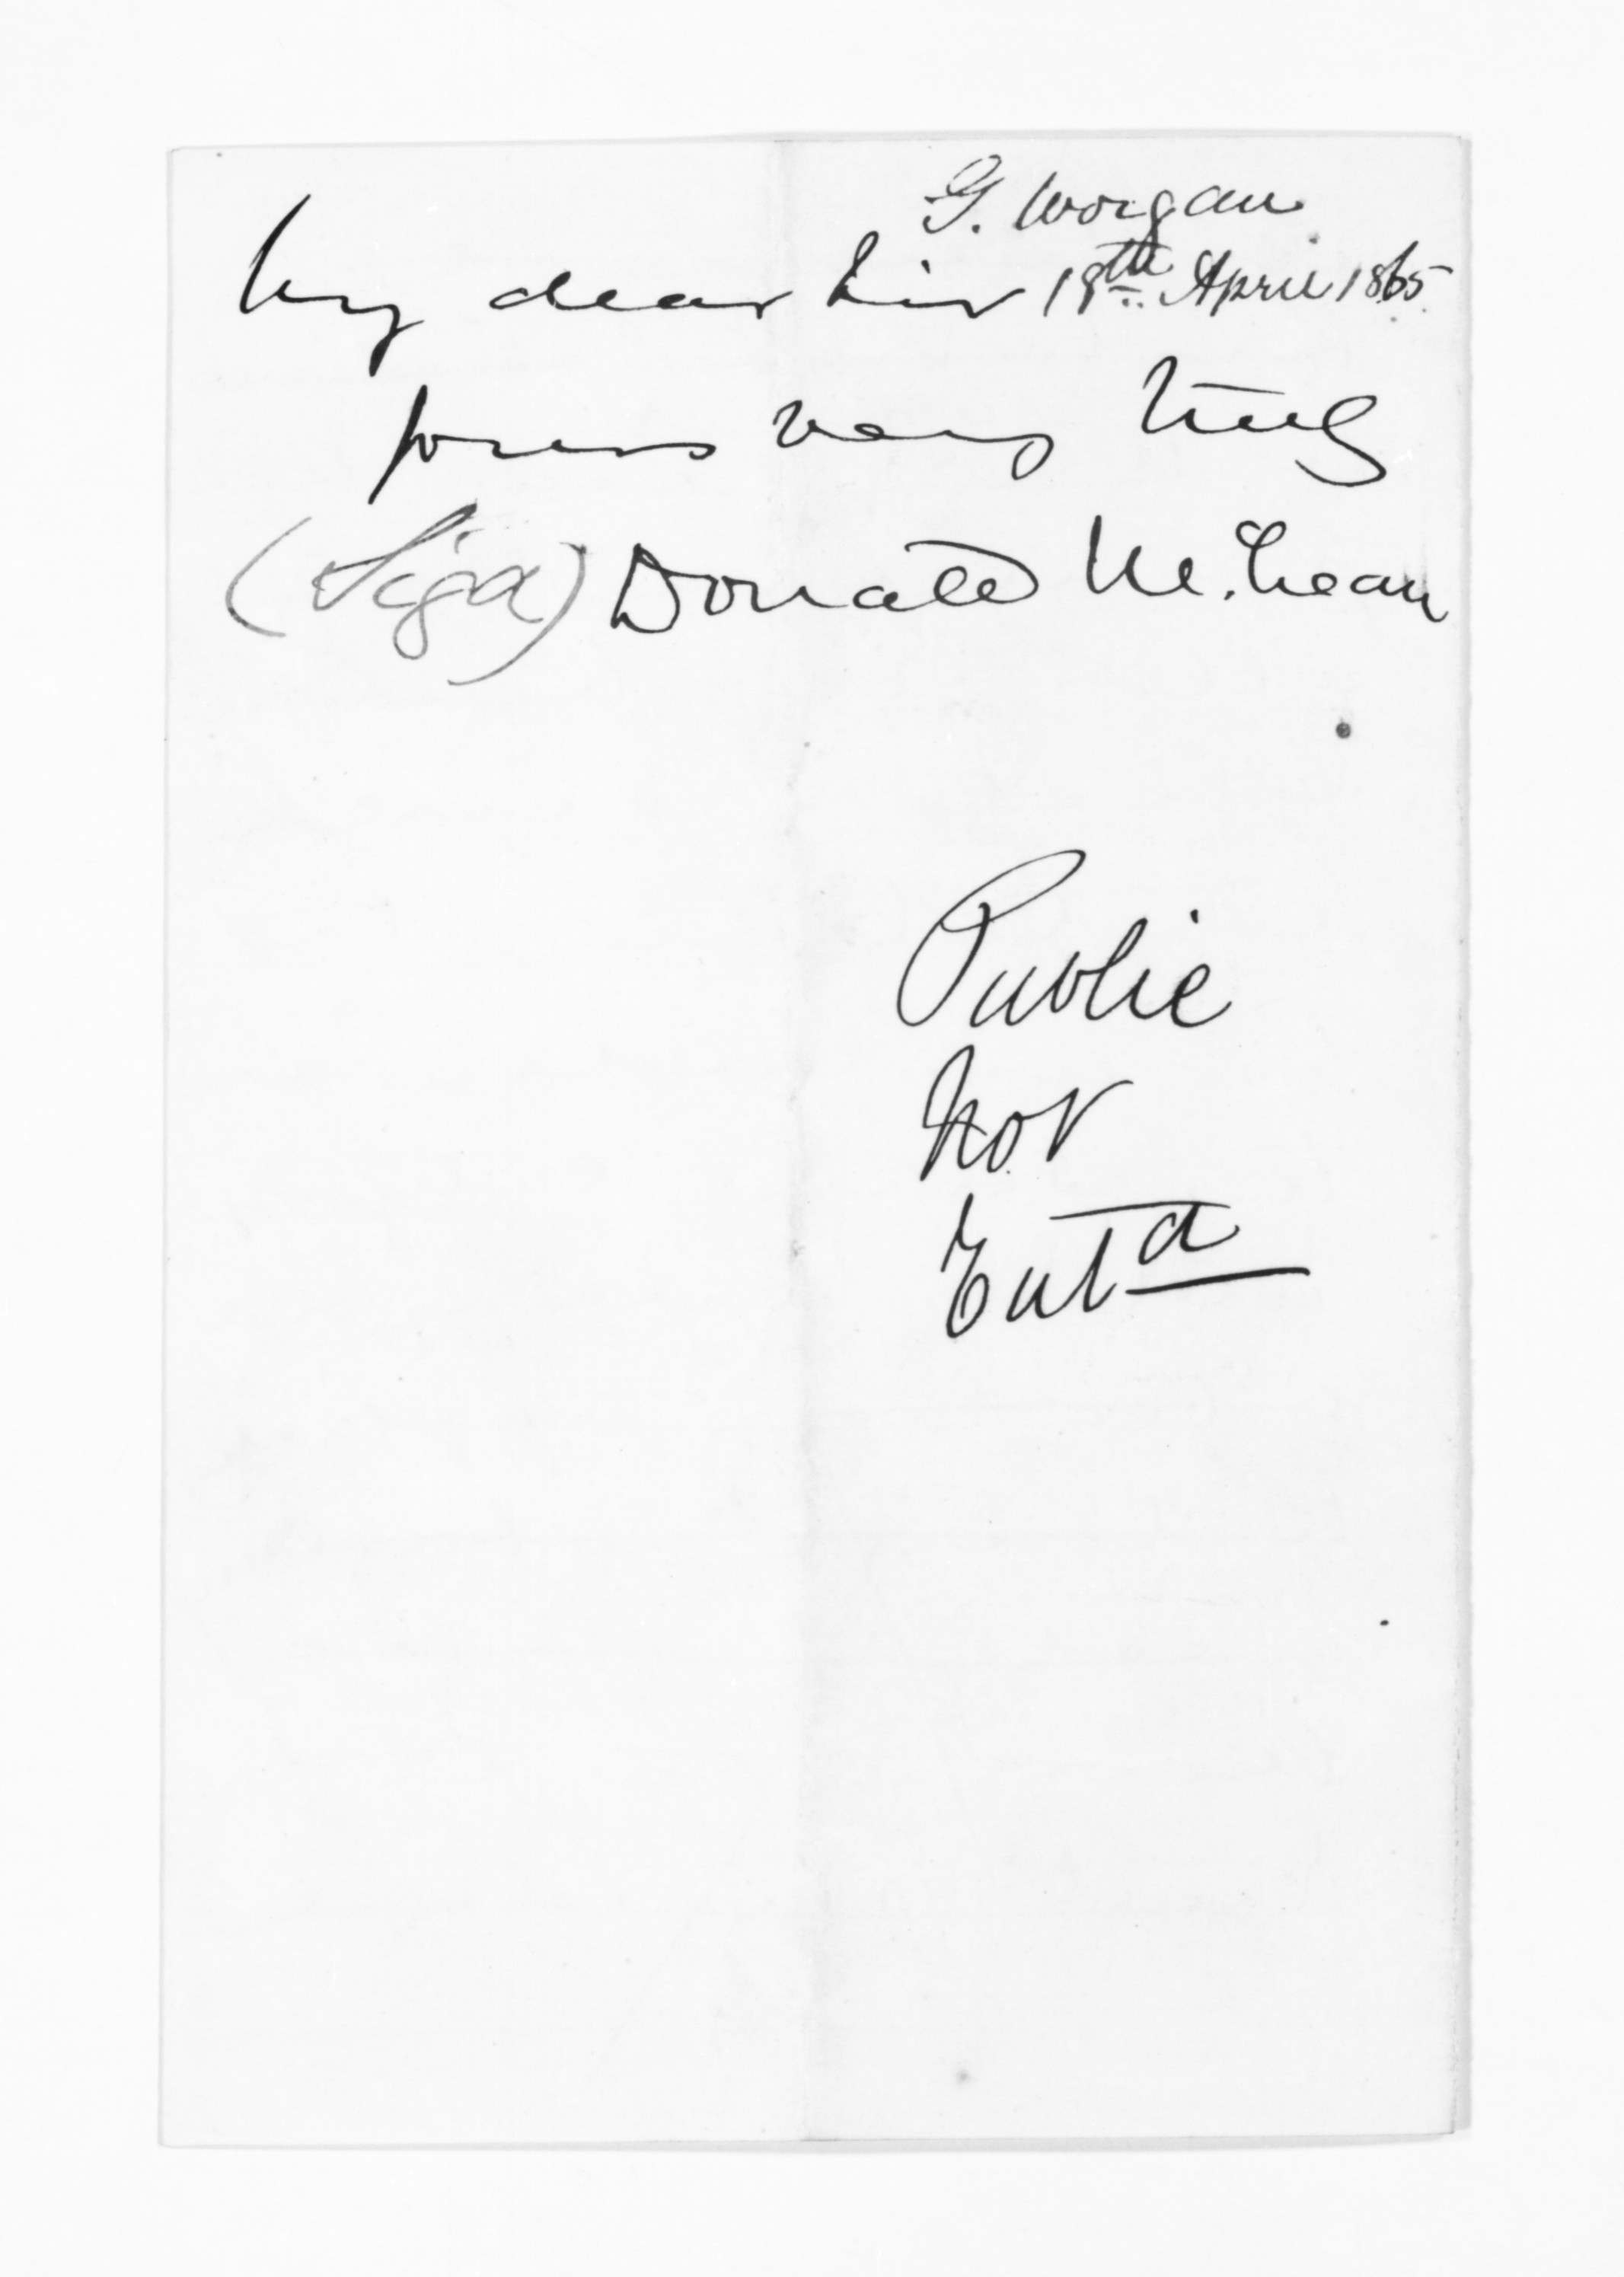 G. Worgan
My dear Sir 18th April 1865
yours very truly
(Sigd) Donald McLean
Public
Not
Entd